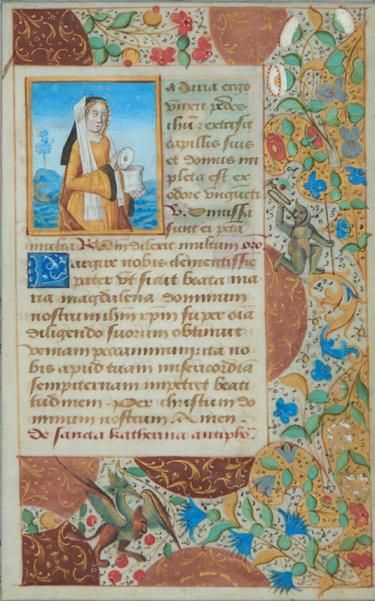 a Maria ergo
vnxit pedes
ihu et extersit
capillis suis
et domus im
pleta est ex
odore vngueti
V. Dimissa
sunt ei pcta
multa R. Qm dilexit multum oro
Largire nobis clementissie
pater vt sicut beata ma
ria magdalena dominum
nostrum ihm xpm super oia
diligendo suorum obtinuit
veniam peccaminum ita no
bis apud tuam misericordia
sempiternam impetret beati
tudinem. Per christum do
minum nostrum. Amen
De sancta katherina antipho